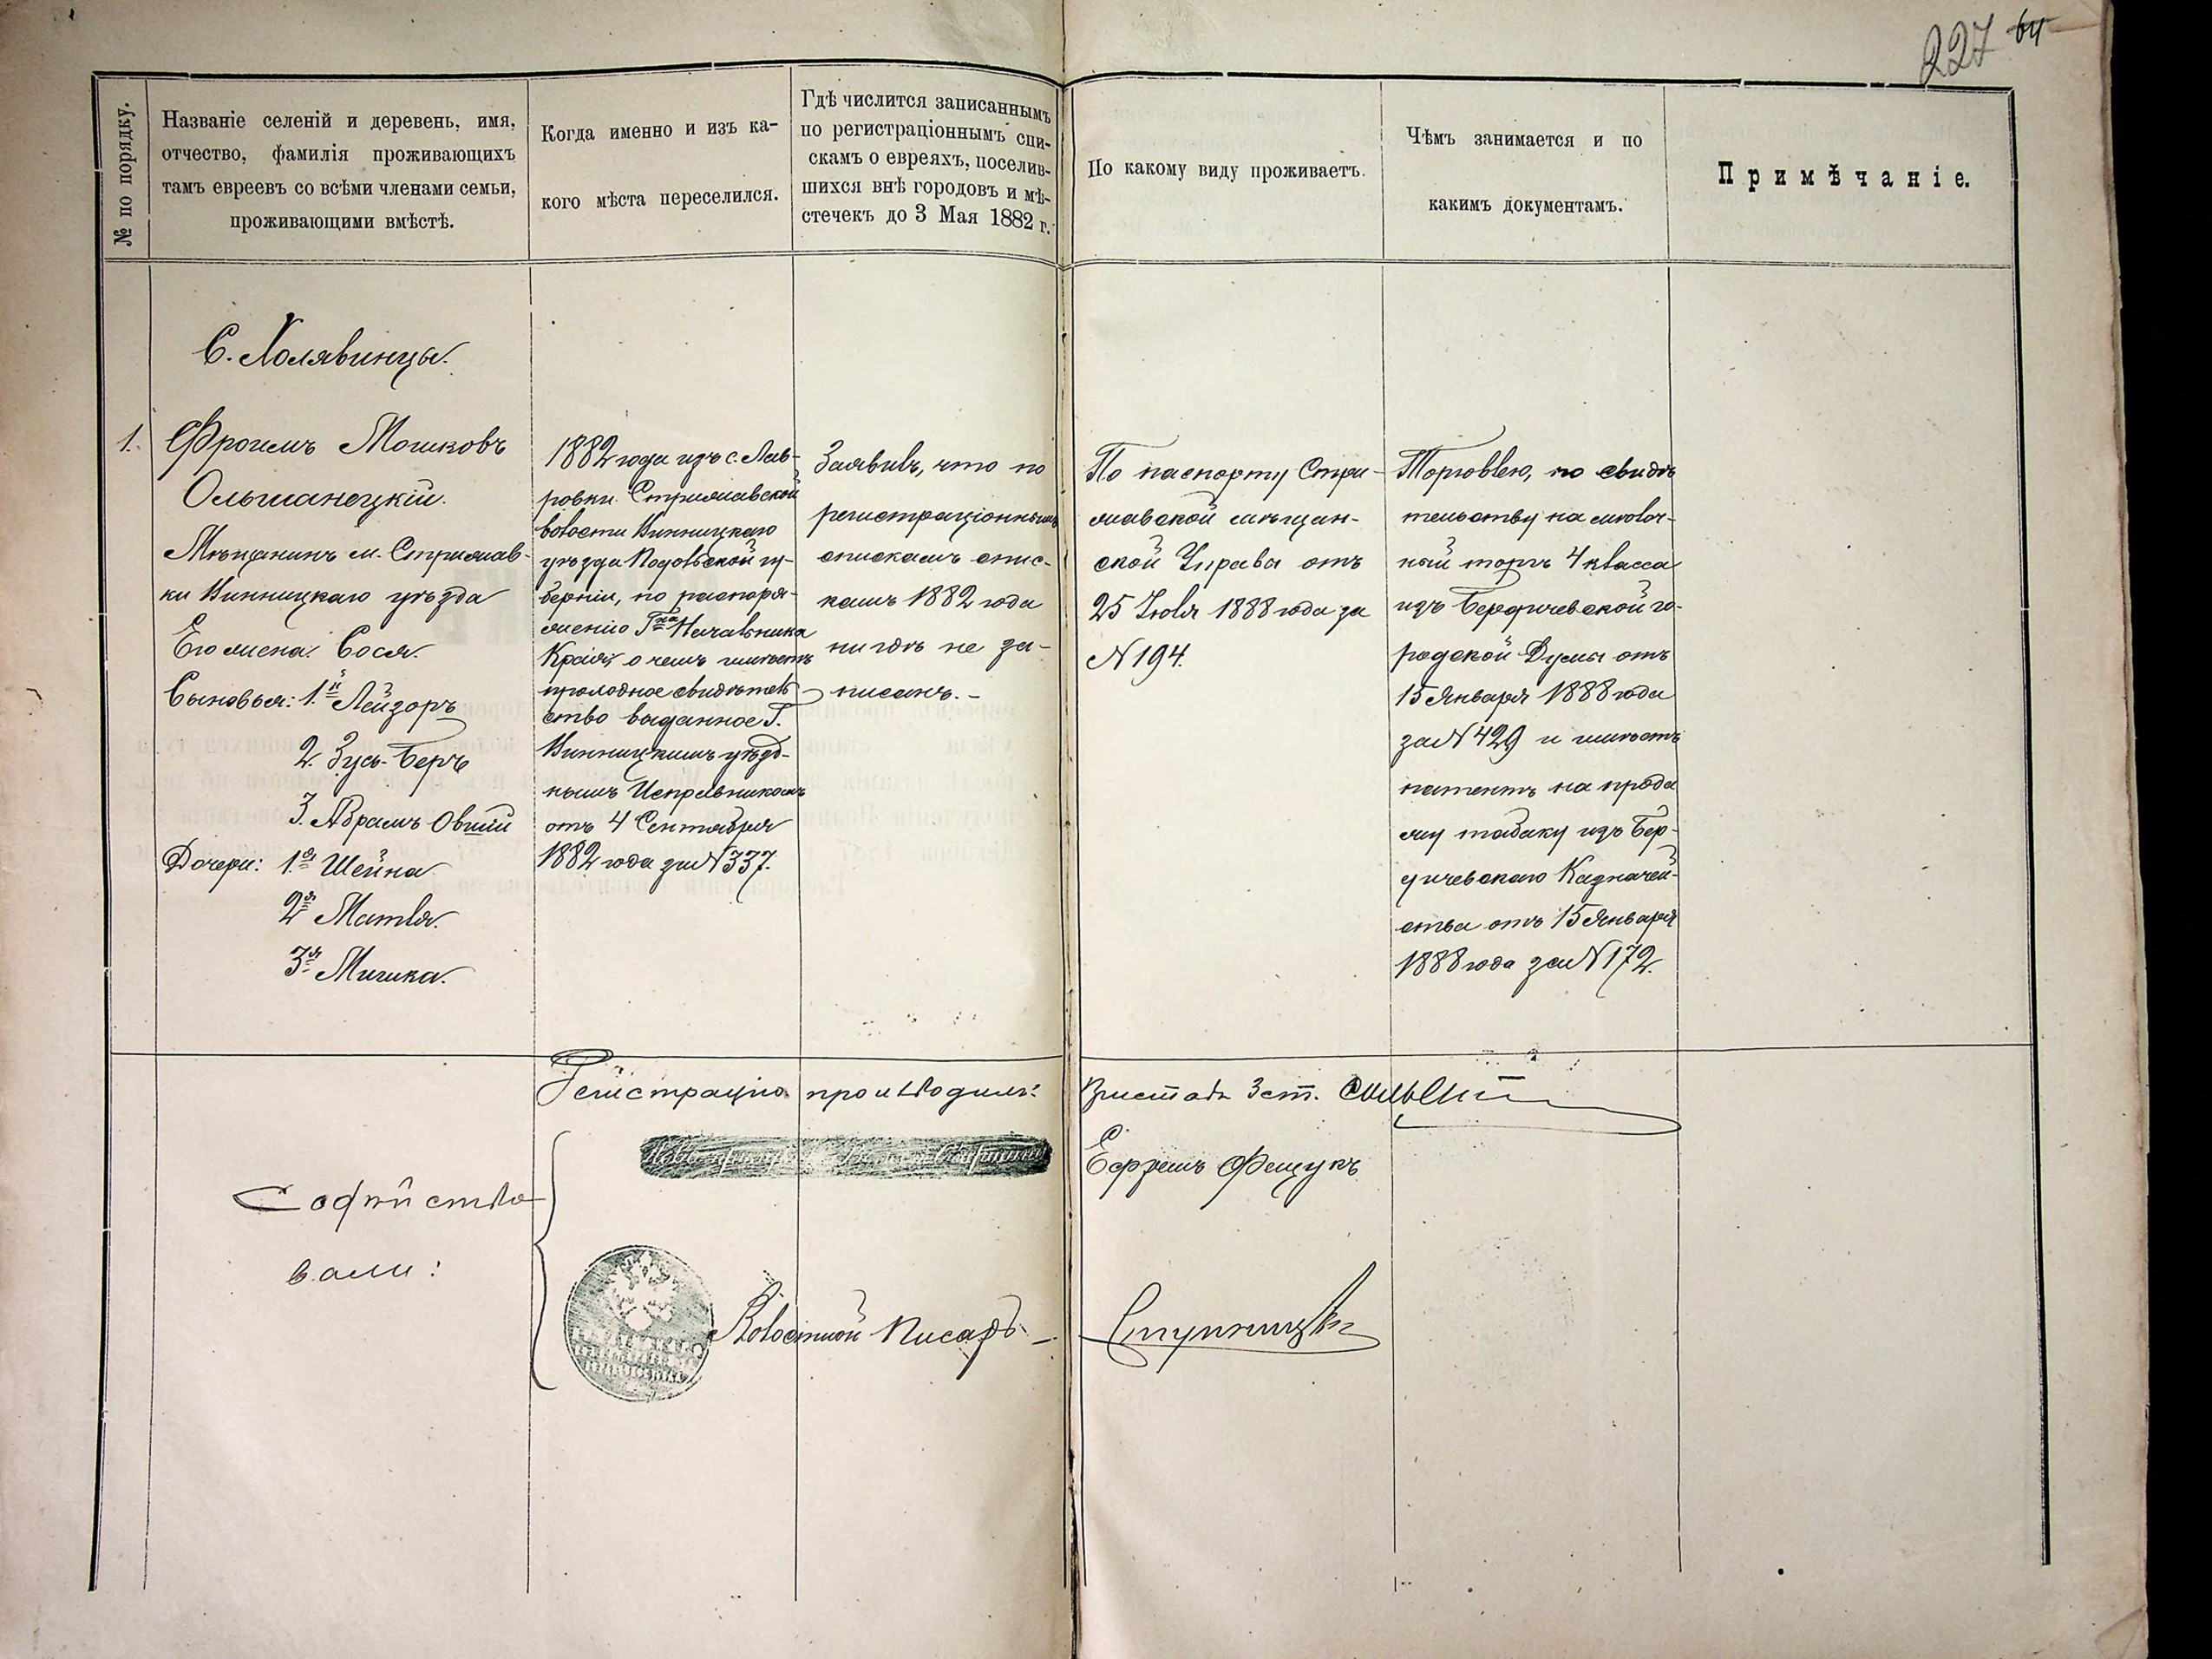 227 64
№ по порядку.
Названіе селеній и деревень, имя,
отчество, фамилія проживающихъ
тамъ евреевъ со всѣми членами семьи,
проживающими вмѣстѣ.
Когда именно и изъ ка-
кого мѣста переселился.
Гдѣ числится записаннымъ
по регистраціоннымъ спи-
скамъ о евреяхъ, поселив-
шихся внѣ городовъ и мѣ-
стечекъ до 3 Мая 1882 г.
По какому виду проживаетъ.
Чѣмъ занимается и по
какимъ документамъ.
Примѣчаніе.
С. Холявинцы.
1.
Фроимъ Мошковъ
Ольшанецкій.
Мѣщанинъ м. Стрижав-
ки Винницкаго уѣзда
Его жена: Сося.
Сыновья: 1.й Лейзоръ
2. Зусь-Беръ
3. Абрамъ Овшій
Дочери: 1.я Шейна
2я Матля.
3я Мишка.
1882 года изъ с. Лав-
ровки Стрижавской
волости Винницкаго
уѣзда Подольской гу-
берніи, по распоря-
женію Гна Начальника
Края, о чемъ имѣетъ
проходное свидѣтель
ство выданное Г.
Винницкимъ уѣзд-
нымъ Исправникомъ
отъ 4 Сентября
1882 года за № 337.
Заявилъ, что по
регистраціоннымъ
спискамъ спис-
камъ 1882 года
нигдѣ не за-
писанъ. -
По паспорту Стри-
жавской мѣщан-
ской Управы отъ
25 Іюля 1888 года за
№ 194.
Торговлею, по свидѣ
тельству на мѣлоч-
ный торгъ 4 класса
изъ Бердичевской го-
родской Думы отъ
15 Января 1888 года
за № 429 и имѣетъ
патентъ на прода
жу табаку изъ Бер-
дичевскаго Казначей-
ства отъ 15 Января
1888 года за № 172.
Регистрацію производилъ: Приставъ 3 ст.
Содѣйство
вали:
Ефремъ Фещукъ
Волостной Писарь -